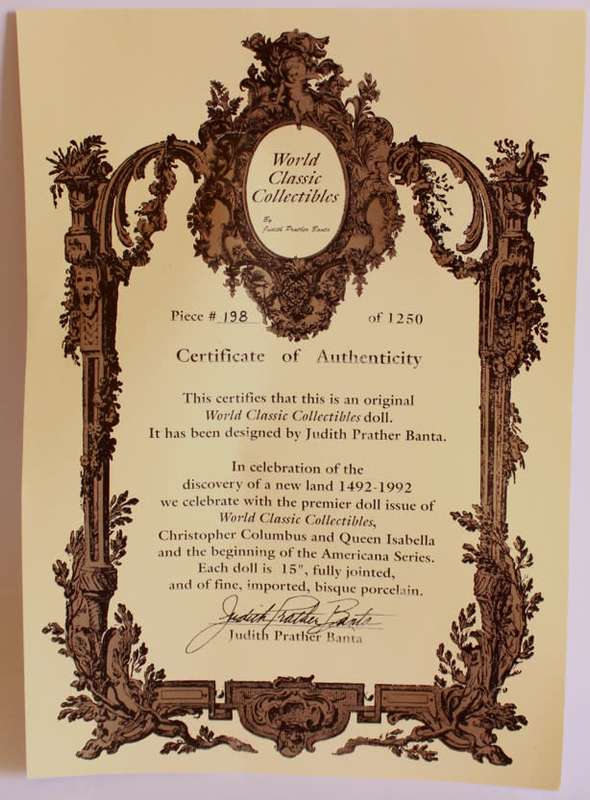 World
Classic
Collectibles
By
Judith Prather Banta
Piece # 198 of 1250
Certificate of Authenticity
This certifies that this is an original
World Classic Collectibles doll.
It has been designed by Judith Prather Banta.
In celebration of the
discovery of a new land 1492-1992
we celebrate with the premier doll issue of
World Classic Collectibles,
Christopher Columbus and Queen Isabella
and the beginning of the Americana Series.
Each doll is 15", fully jointed,
and of fine, imported, bisque porcelain.
Judith Prather Banta
Judith Prather Banta